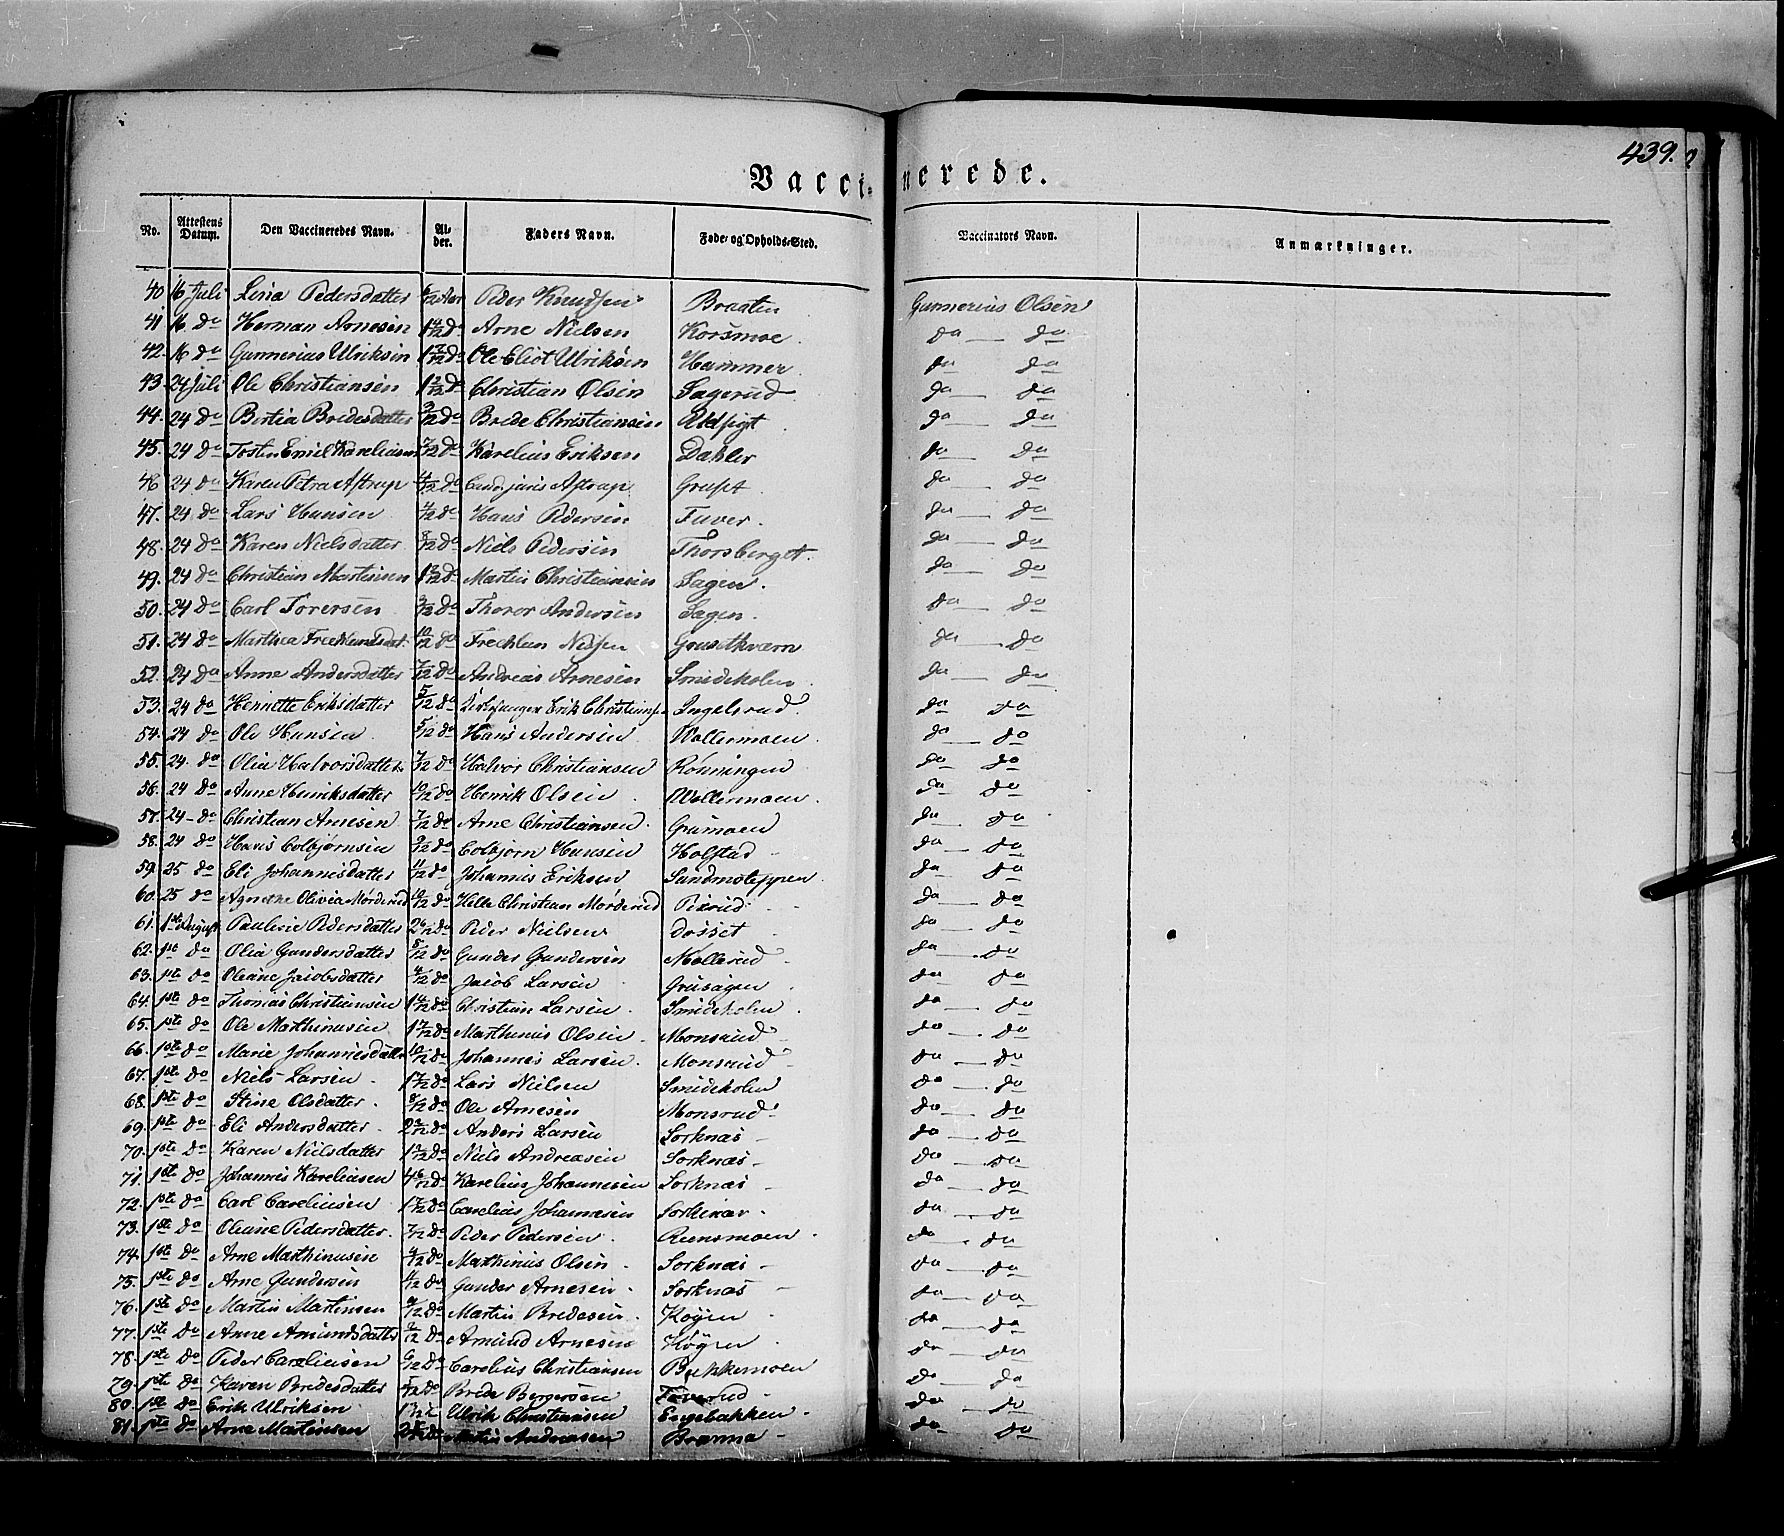 439.
Vaccinerede.
No. Attestens Datum. Den Vaccineredes Navn. Alder. Faders Navn. Føde- og Opholds-Sted. Vaccinators Navn. Anmærkninger.
40 16 Juli Lena Pedersdatter Peder Knudsen Braaten Gunnerius Olsen
41 16 do Herman Arnesen 1 do Arne Nielsen Korsmoe do do
42. 16 do Gunnerius Ulriksen 1 do Ole Eliot Ulriksen Hammer do do
43. 24 Juli Ole Christiansen 1 do Christian Olsen Sagerud do do
44. 24 do Bertia Bredesdatter do Brede Christiansen Udsigt do do
45. 24 do Tosten Emil Kareliusen 7/12 do Karelius Eriksen Dahler do do
46 24 do Karen Petra Astrup do Astrup Gruset do do
47. 24 do Lars Hansen do Hans Pedersen Fuver. do do
48. 24 do Karen Nielsdatter 8/12 do Niels Pedersen Thorsberget. do do
49. 24 do Christian Martinsen 1 do Martin Christiansen Sagen. do do
50. 24 do Carl Torersen 9/12 do Thorer Andersen Sagen. do do
51. 24 do Marthea 10/12 do Frechlum Nilsen Grusetkværn do do
52. 24 do Anne Andersdatter 7/12 do Andreas Arnesen Smideholen do do
53. 24 do Henriette Eriksdatter 5/12 do Erik Christians Ingelsrud. do do
54. 24 do Ole Hansen 5/12 do Hans Andersen Wallermoen. do do
55. 24. do Olea Halvorsdatter 7/12 do Halvor Christiansen Rönningen do do
56. 24 do Anne Henriksdatter 10/12 do Henrik Olsen Wallermoen. do do
57. 24 do Christian Arnesen 7/12 do Arne Christiansen. Grümoen do do
58. 24 do Hans Colbjørnsen 9/12 do Colbjørn Hansen Holstad do do
59. 25 do Eli Johannesdatter 11/12 do Johannes Eriksen Sandmoteppen. do do
60. 25 do Agnethe Olivia Mörderud 10/12 do Helle Christian Mörderud Pixrud do do
61. 1ste August Pauline Pedersdatter 2 do Peder Nielsen Dosset do do
62. 1ste do Olia Gundersdatter 8/12 do Gunder Gundersen Møllerud do do
63. 1ste do Oleane Jacobsdatter do Jacob Larsen Grüsagen do do
64. 1ste do Thomas Christiansen 1 do Christian Larsen. Smideholen do do
65. 1ste do Ole Marthinusen 1 do Marthinus Olsen Monsrud do do
66. 1ste do Marie Johannesdatter 10/12 do Johannes Larsen. Monsrud do do
67. 1ste do Niels Larsen 1 do Lars Nielsen Smideholen do do
68. 1ste do Stine Olsdatter. 8/12 do Ole Arnesen Monsrud do do
69. 1ste do Eli Andersdatter. 2 do Anders Larsen Sorknæs do do
70. 1ste do Karen Nielsdatter 1 do Niels Andreasen Sorknæs do do
71. 1ste do Johannes Kareliusen 4 do Karelius Johannesen Sorknæs do do
72. 1ste do Carl Careliusen 1 do Carelius Johannesen do do
73. 1ste do Oleane Pedersdatter. 7/12 do Peder Pedersen. Reensmoen. do do
74. 1ste do Arne Marthinusen do Marthinus Olsen. Sorknæs do do
75. 1ste do Arne Gundersen do Gunder Arnesen. Sorknæs do do
76. 1ste do Martin Martinsen do Martin Bredesen. Køyen do do
77. 1ste do Anne Amundsdatter do Amund Arnesen Høyen do do
78. 1ste do Peder Careliusen do Carelius Christiansen Bekkemoen do do
79. 1ste do Karen Bredesdatter do Brede Bergersen do do
80. 1ste do Erik Ulriksen Ulrik Christiansen Engebakken. do do
81. 1ste do Arne Martinsen Martin Andreasen Brænna do do